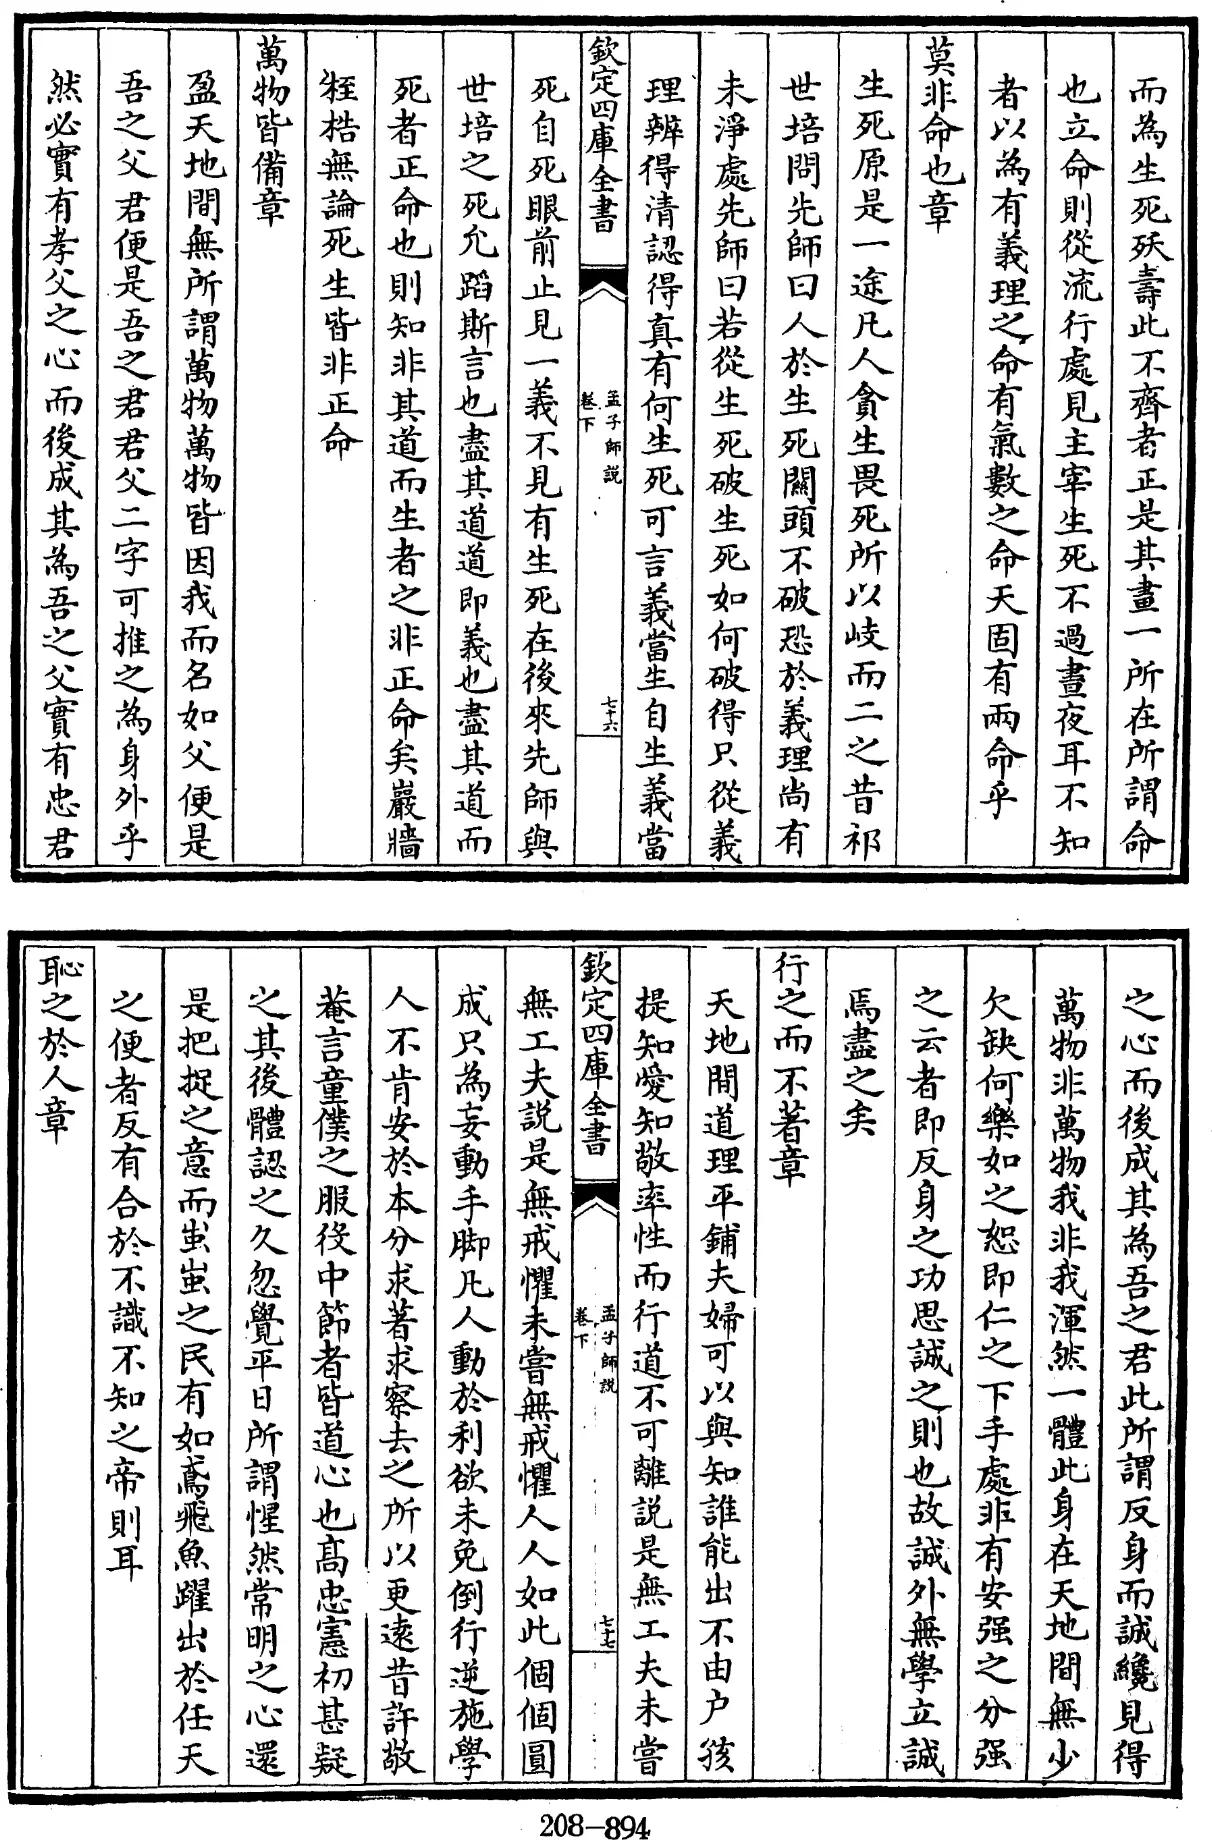 而為生死殀壽此不齊者正是其畫一所在所謂命
也立命則從流行處見主宰生死不過晝夜耳不知
者以為有義理之命有氣數之命天固有兩命乎
莫非命也章
生死原是一途凡人貪生畏死所以岐而二之昔祁
世培問先師曰人於生死關頭不破恐於義理尚有
未淨處先師曰若從生死破生死如何破得只從義
理辨得清認得真有何生死可言義當生自生義當
欽定四庫全書
孟子師說
卷下
七十六
死自死眼前止見一義不見有生死在後來先師與
世培之死允蹈斯言也盡其道道即義也盡其道而
死者正命也則知非其道而生者之非正命矣巖牆
桎梏無論死生皆非正命
萬物皆備章
盈天地間無所謂萬物萬物皆因我而名如父便是
吾之父君便是吾之君君父二字可推之為身外乎
然必實有孝父之心而後成其為吾之父實有忠君
之心而後成其為吾之君此所謂反身而誠纔見得
萬物非萬物我非我渾然一體此身在天地間無少
欠缺何樂如之恕即仁之下手處非有安强之分强
之云者即反身之功思誠之則也故誠外無學立誠
焉盡之矣
行之而不著章
天地間道理平鋪夫婦可以與知誰能出不由户孩
提知愛知敬率性而行道不可離説是無工夫未嘗
欽定四庫全書
孟子師説
卷下
七十七
無工夫説是無戒懼未嘗無戒懼人人如此個個圓
成只為妄動手脚凡人動於利欲未免倒行逆施學
人不肯安於本分求著求察去之所以更遠昔許敬
菴言童僕之服役中節者皆道心也高忠憲初甚疑
之其後體認之久忽覺平日所謂惺然常明之心還
是把捉之意而蚩蚩之民有如鳶飛魚躍出於任天
之便者反有合於不識不知之帝則耳
恥之於人章
208-894